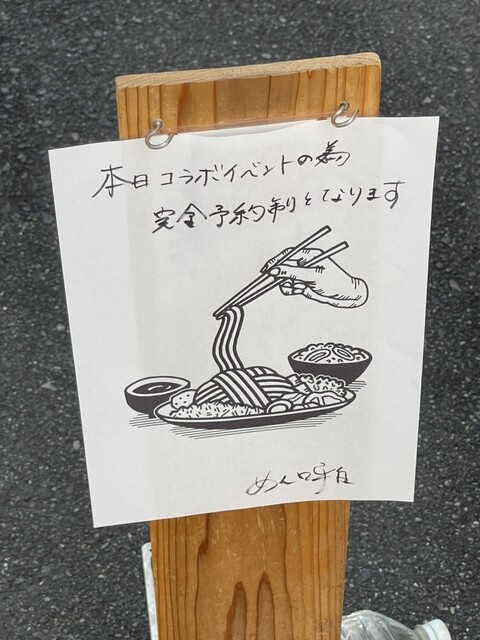 本日コラボイベントの為
完全予約制となります
めん